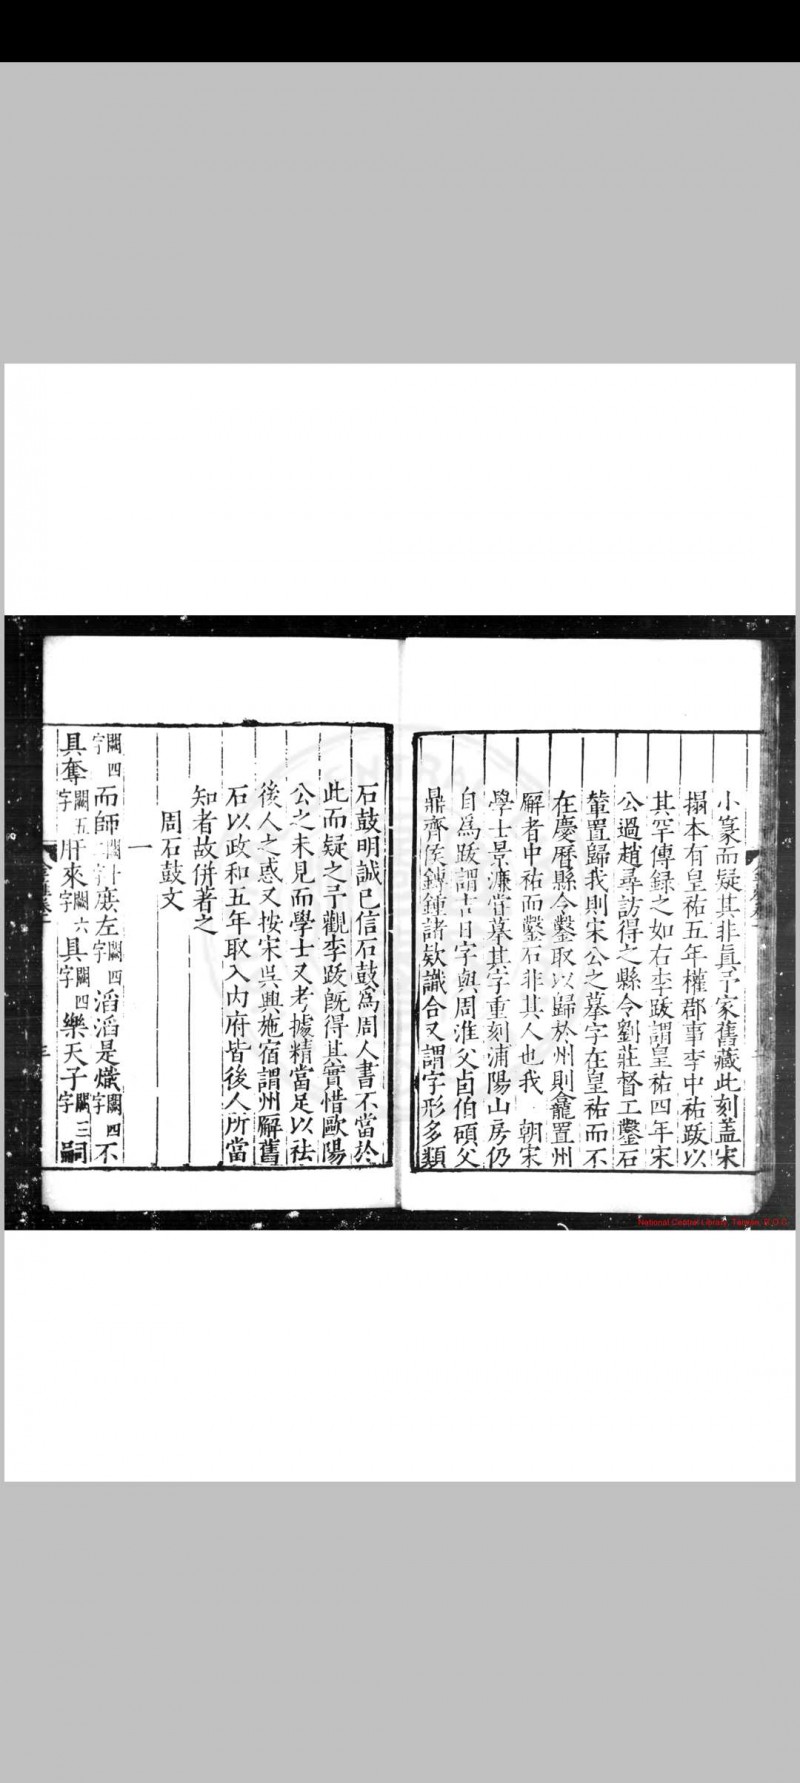 小篆而疑其非眞予家舊藏此刻蓋宋
搨本有皇祐五年權郡事李中祐跋以
其罕傳録之如右李跋謂皇祐四年宋
公過趙尋訪得之縣令劉莊督工鑿石
輦置歸我則宋公之摹字在皇祐而不
在慶曆縣令鑿取以歸於州則龕置州
廨者中祐而鑿石非其人也我 朝宋
學士景濂嘗摹其字重刻浦陽山房仍
自爲跋謂吉日字與周淮父卣伯碩父
鼎齊侯鎛鍾諸欵識合又謂字形多類
石鼓明誠已信石鼓爲周人書不當於
此而疑之予觀李跋旣得其實惜歐陽
公之未見而學士又考據精當足以袪
後人之惑又按宋吳興施宿謂州廨舊
石以政和五年取入内府皆後人所當
知者故併著之
周石鼓文
一
闕四字而師 左闕四字滔滔是熾闕四字不
具奪闕五字肝來闕六字具闕四字樂天子闕三字嗣
National Central Library, Taiwan, R.O.C.